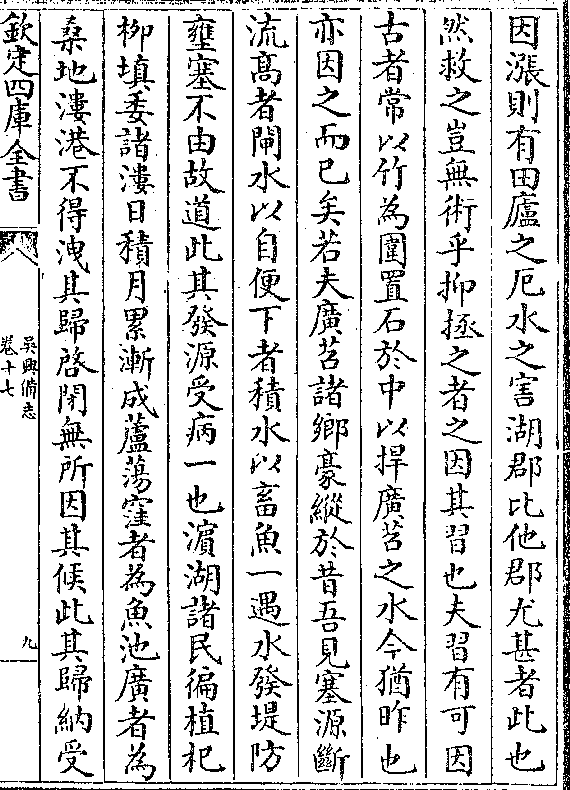 因漲則有田廬之厄水之害湖郡比他郡尤甚者此也
然救之豈無術乎抑拯之者之因其習也夫習有可因
古者常以竹為圍置石於中以捍廣苕之水今猶昨也
亦因之而已矣若夫廣苕諸鄉豪縱於昔吾見塞源斷
流高者閘水以自便下者積水以畜魚一遇水發堤防
壅塞不由故道此其發源受病一也濵湖諸民徧植杞
柳填委諸漊日積月累漸成蘆蕩窪者為魚池廣者為
桑地漊港不得洩其歸啓閉無所因其候此其歸納受
欽定四庫全書
吳興備志
卷十七
九